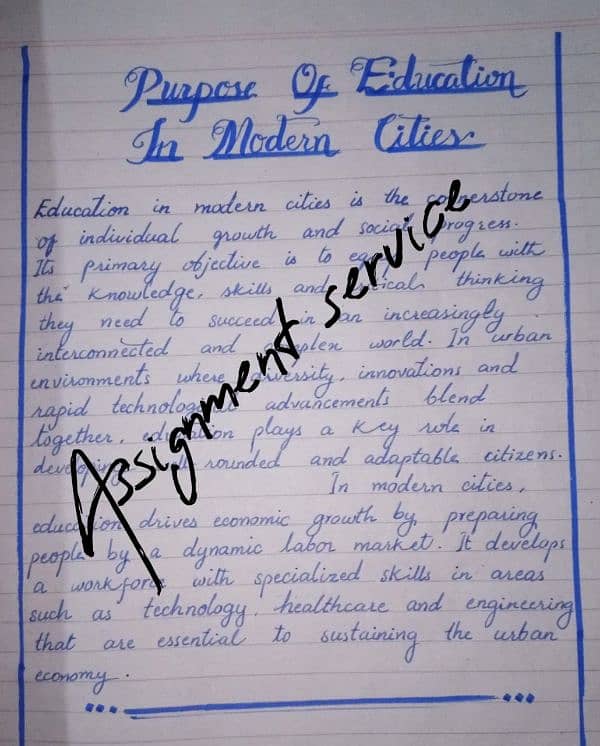 Purpose Of Education
In Modern Cities
Education in modern cities is the cornerstone
of individual growth and social progress.
Its primary objective is to equip people with
the knowledge, skills and critical thinking
they need to succeed in an increasingly
interconnected and complex world. In urban
environments where diversity, innovations and
rapid technological advancements blend
together, education plays a key role in
developing well rounded and adaptable citizens.
In modern cities,
education drives economic growth by preparing
people by a dynamic labor market. It develops
a workforce with specialized skills in areas
such as technology, healthcare and engineering
that are essential to sustaining the urban
economy.
Assignment service